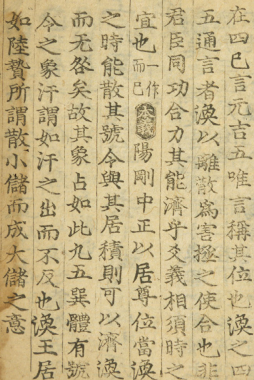 在四已言元吉五唯言稱其位也渙之四
五通言者渙以離散爲害拯之使合也非
君臣同功合力其能濟乎爻義相須時之
宜也一作而已本義陽剛中正以居尊位當渙
之時能散其號令與其居積則可以濟渙
而无咎矣故其象占如此九五巽體有號
令之象汗謂如汗之出而不反也渙王居
如陸贄所謂散小儲而成大儲之意